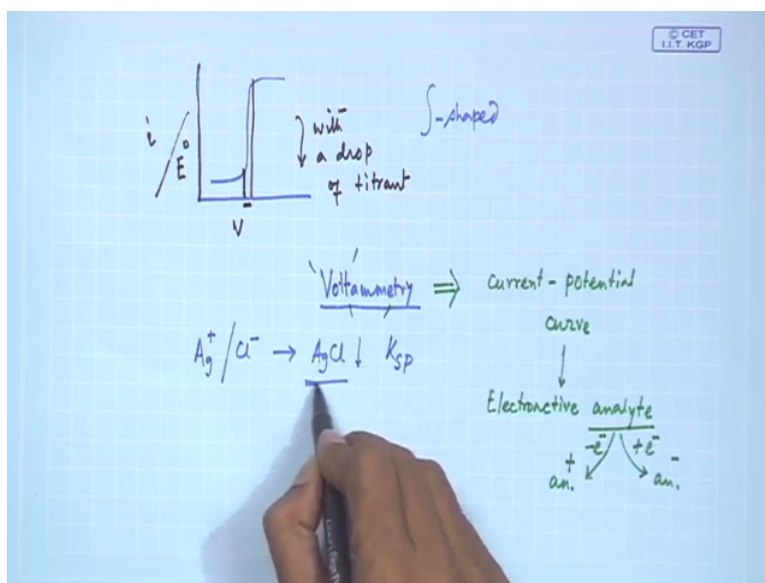 © CET
I.I.T. KGP
i / E°
V
with
a drop
of titrant
∫-shaped
'Voltammetry' ⇒ current-potential
curve
↓
Ag⁺/Cl⁻ → AgCl ↓ Ksp
Electroactive analyte
-e⁻ +e⁻
an.⁺ an.⁻